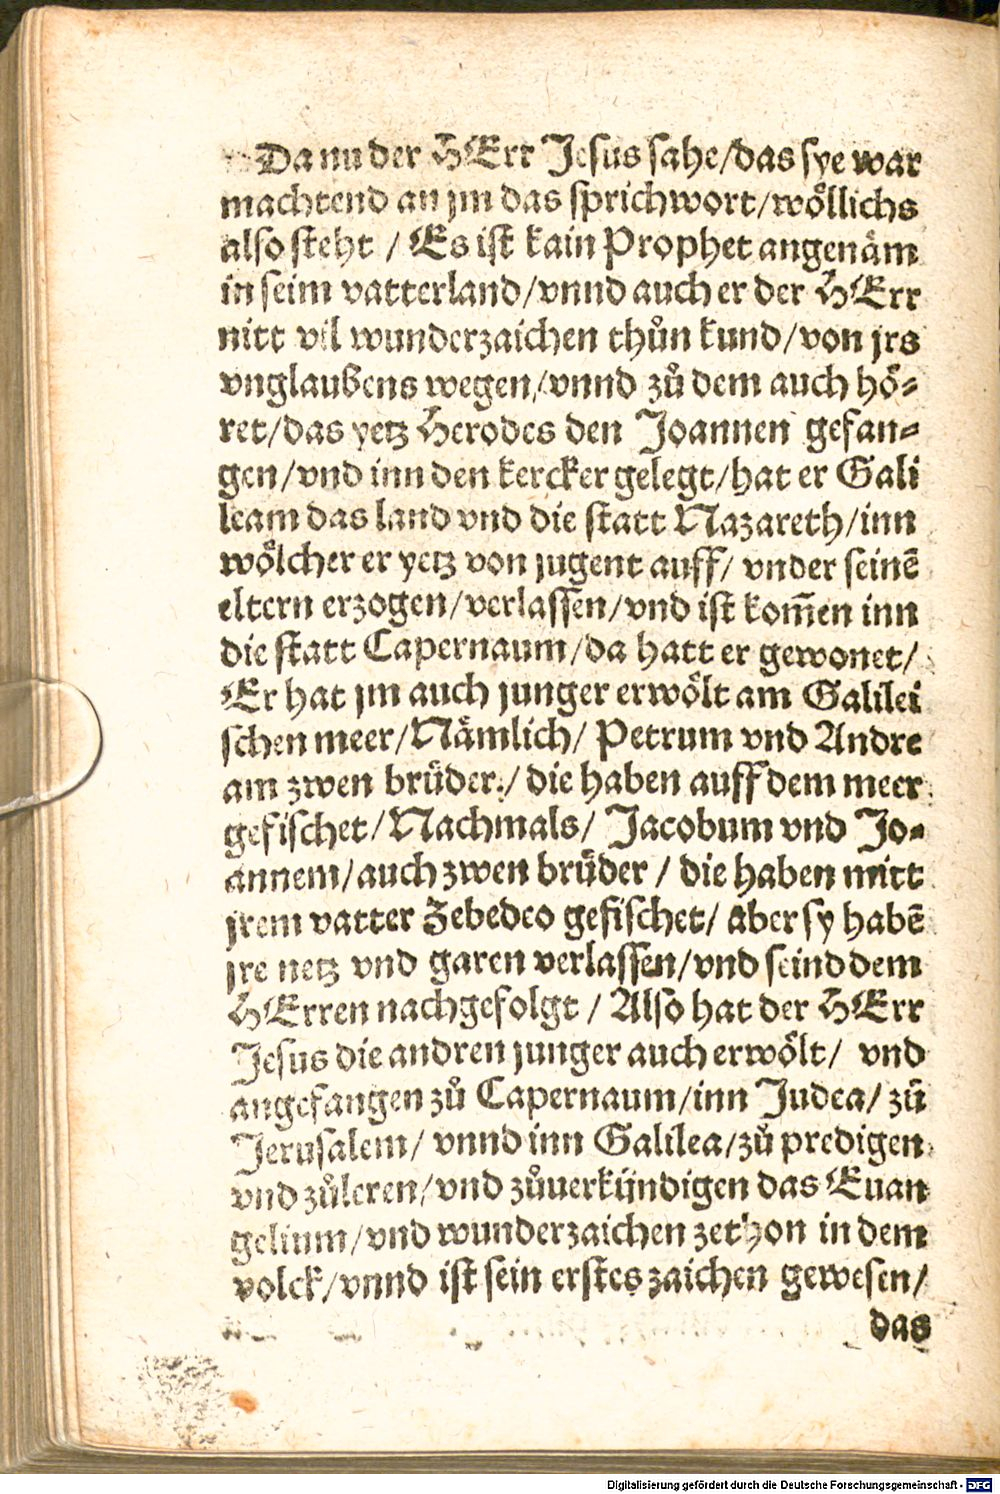 Da nu der HErr Jesus sahe/das sye war
machtend an jm das sprichwort/wöllichs
also steht / Es ist kain Prophet angenäm
in seim vatterland/vnnd auch er der HErr
nitt vil wunderzaichen thůn kund/von jrs
vnglaubens wegen/vnnd zů dem auch hö⸗
ret/das yetz Herodes den Joannen gefan⸗
gen/vnd inn den kercker gelegt/hat er Gali
leam das land vnd die statt Nazareth/inn
wölcher er yetz von jugent auff/ vnder seinē
eltern erzogen/verlassen/vnd ist kom̄en inn
die statt Capernaum/da hatt er gewonet/
Er hat jm auch junger erwölt am Galilei
schen meer/Nämlich/ Petrum vnd Andre
am zwen brüder/ die haben auff dem meer
gefischet/Nachmals/ Jacobum vnd Jo⸗
annem/auch zwen brüder / die haben mitt
jrem vatter Zebedeo gefischet/ aber sy habē
jre netz vnd garen verlassen/vnd seind dem
HErren nachgefolgt / Also hat der HErr
Jesus die andren junger auch erwölt/ vnd
angefangen zů Capernaum/inn Judea/ zů
Jerusalem/ vnnd inn Galilea/zů predigen
vnd zůleren/vnd zůuerkündigen das Euan
gelium/vnd wunderzaichen zethon in dem
volck/vnnd ist sein erstes zaichen gewesen/
das
Digitalisierung gefördert durch die Deutsche Forschungsgemeinschaft - DFG